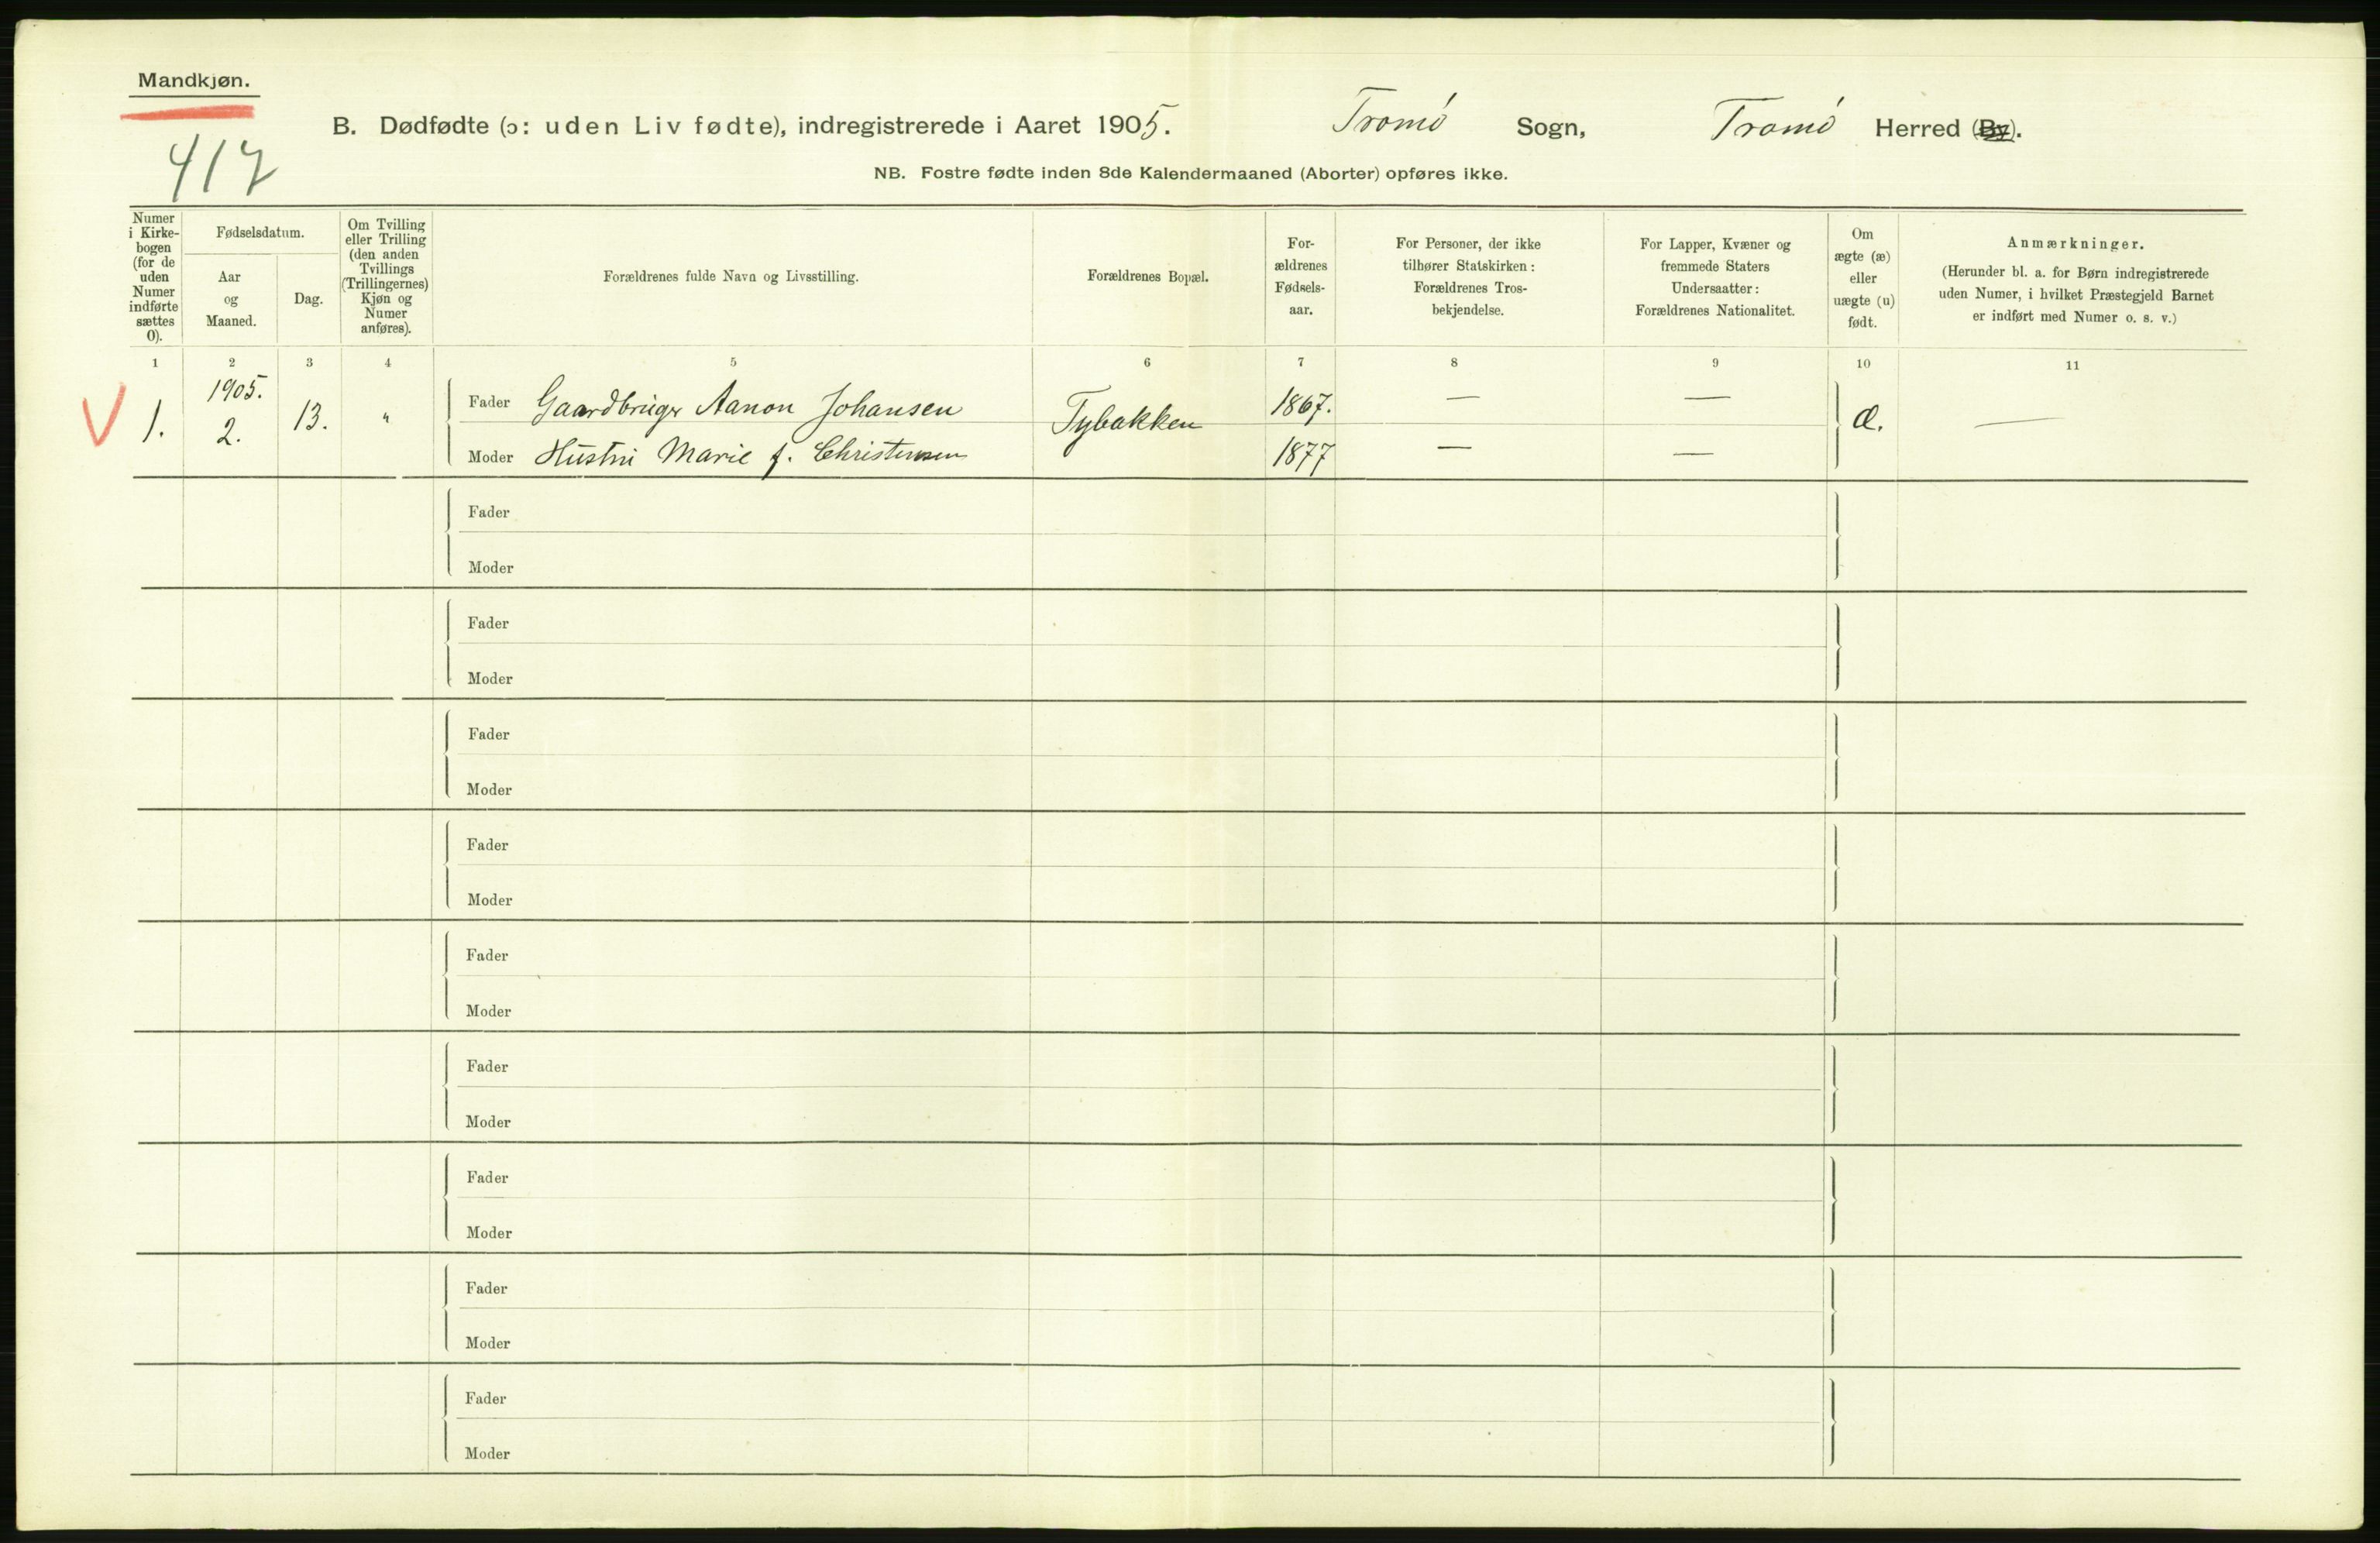 Mandkjøn.
417
B. Dødfødte (ɔ: uden Liv fødte), indregistrerede i Aaret 1905. Tromø Sogn, Tromø Herred (By).
NB. Fostre fødte inden 8de Kalendermaaned (Aborter) opføres ikke.
Numer
i Kirke-
bogen
(for de
uden
Numer
indførte
sættes
0).
Fødselsdatum.
Aar
og
Maaned.
Dag.
Om Tvilling
eller Trilling
(den anden
Tvillings
(Trillingernes)
Kjøn og
Numer
anføres).
Forældrenes fulde Navn og Livsstilling.
Forældrenes Bopæl.
For-
ældrenes
Fødsels-
aar.
For Personer, der ikke
tilhører Statskirken:
Forældrenes Tros-
bekjendelse.
For Lapper, Kvæner og
fremmede Staters
Undersaatter:
Forældrenes Nationalitet.
Om
ægte (æ)
eller
uægte (u)
født.
Anmærkninger.
(Herunder bl. a. for Børn indregistrerede
uden Numer, i hvilket Præstegjeld Barnet
er indført med Numer o. s. v.)
1 2 3 4 5 6 7 8 9 10 11
1905.
1. 2. 13. " Fader Gaardbruger Aanon Johansen Tybakken 1867. — — æ. —
Moder Hustru Marie f. Christensen 1877 — —
Fader
Moder
Fader
Moder
Fader
Moder
Fader
Moder
Fader
Moder
Fader
Moder
Fader
Moder
Fader
Moder
Fader
Moder